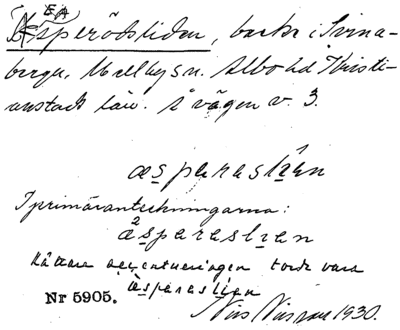 EA
Esperödsliden, backe i Svina-
berga, Mellby sn. Albo hd Kristi-
anstads län. i vägen v. 3.
æsperaslien
I primäranteckningarna:
æ²speraslien
Rättare accentueringen torde vara
àsperaslien
Nr 5905.
Nils Nilsson 1930.